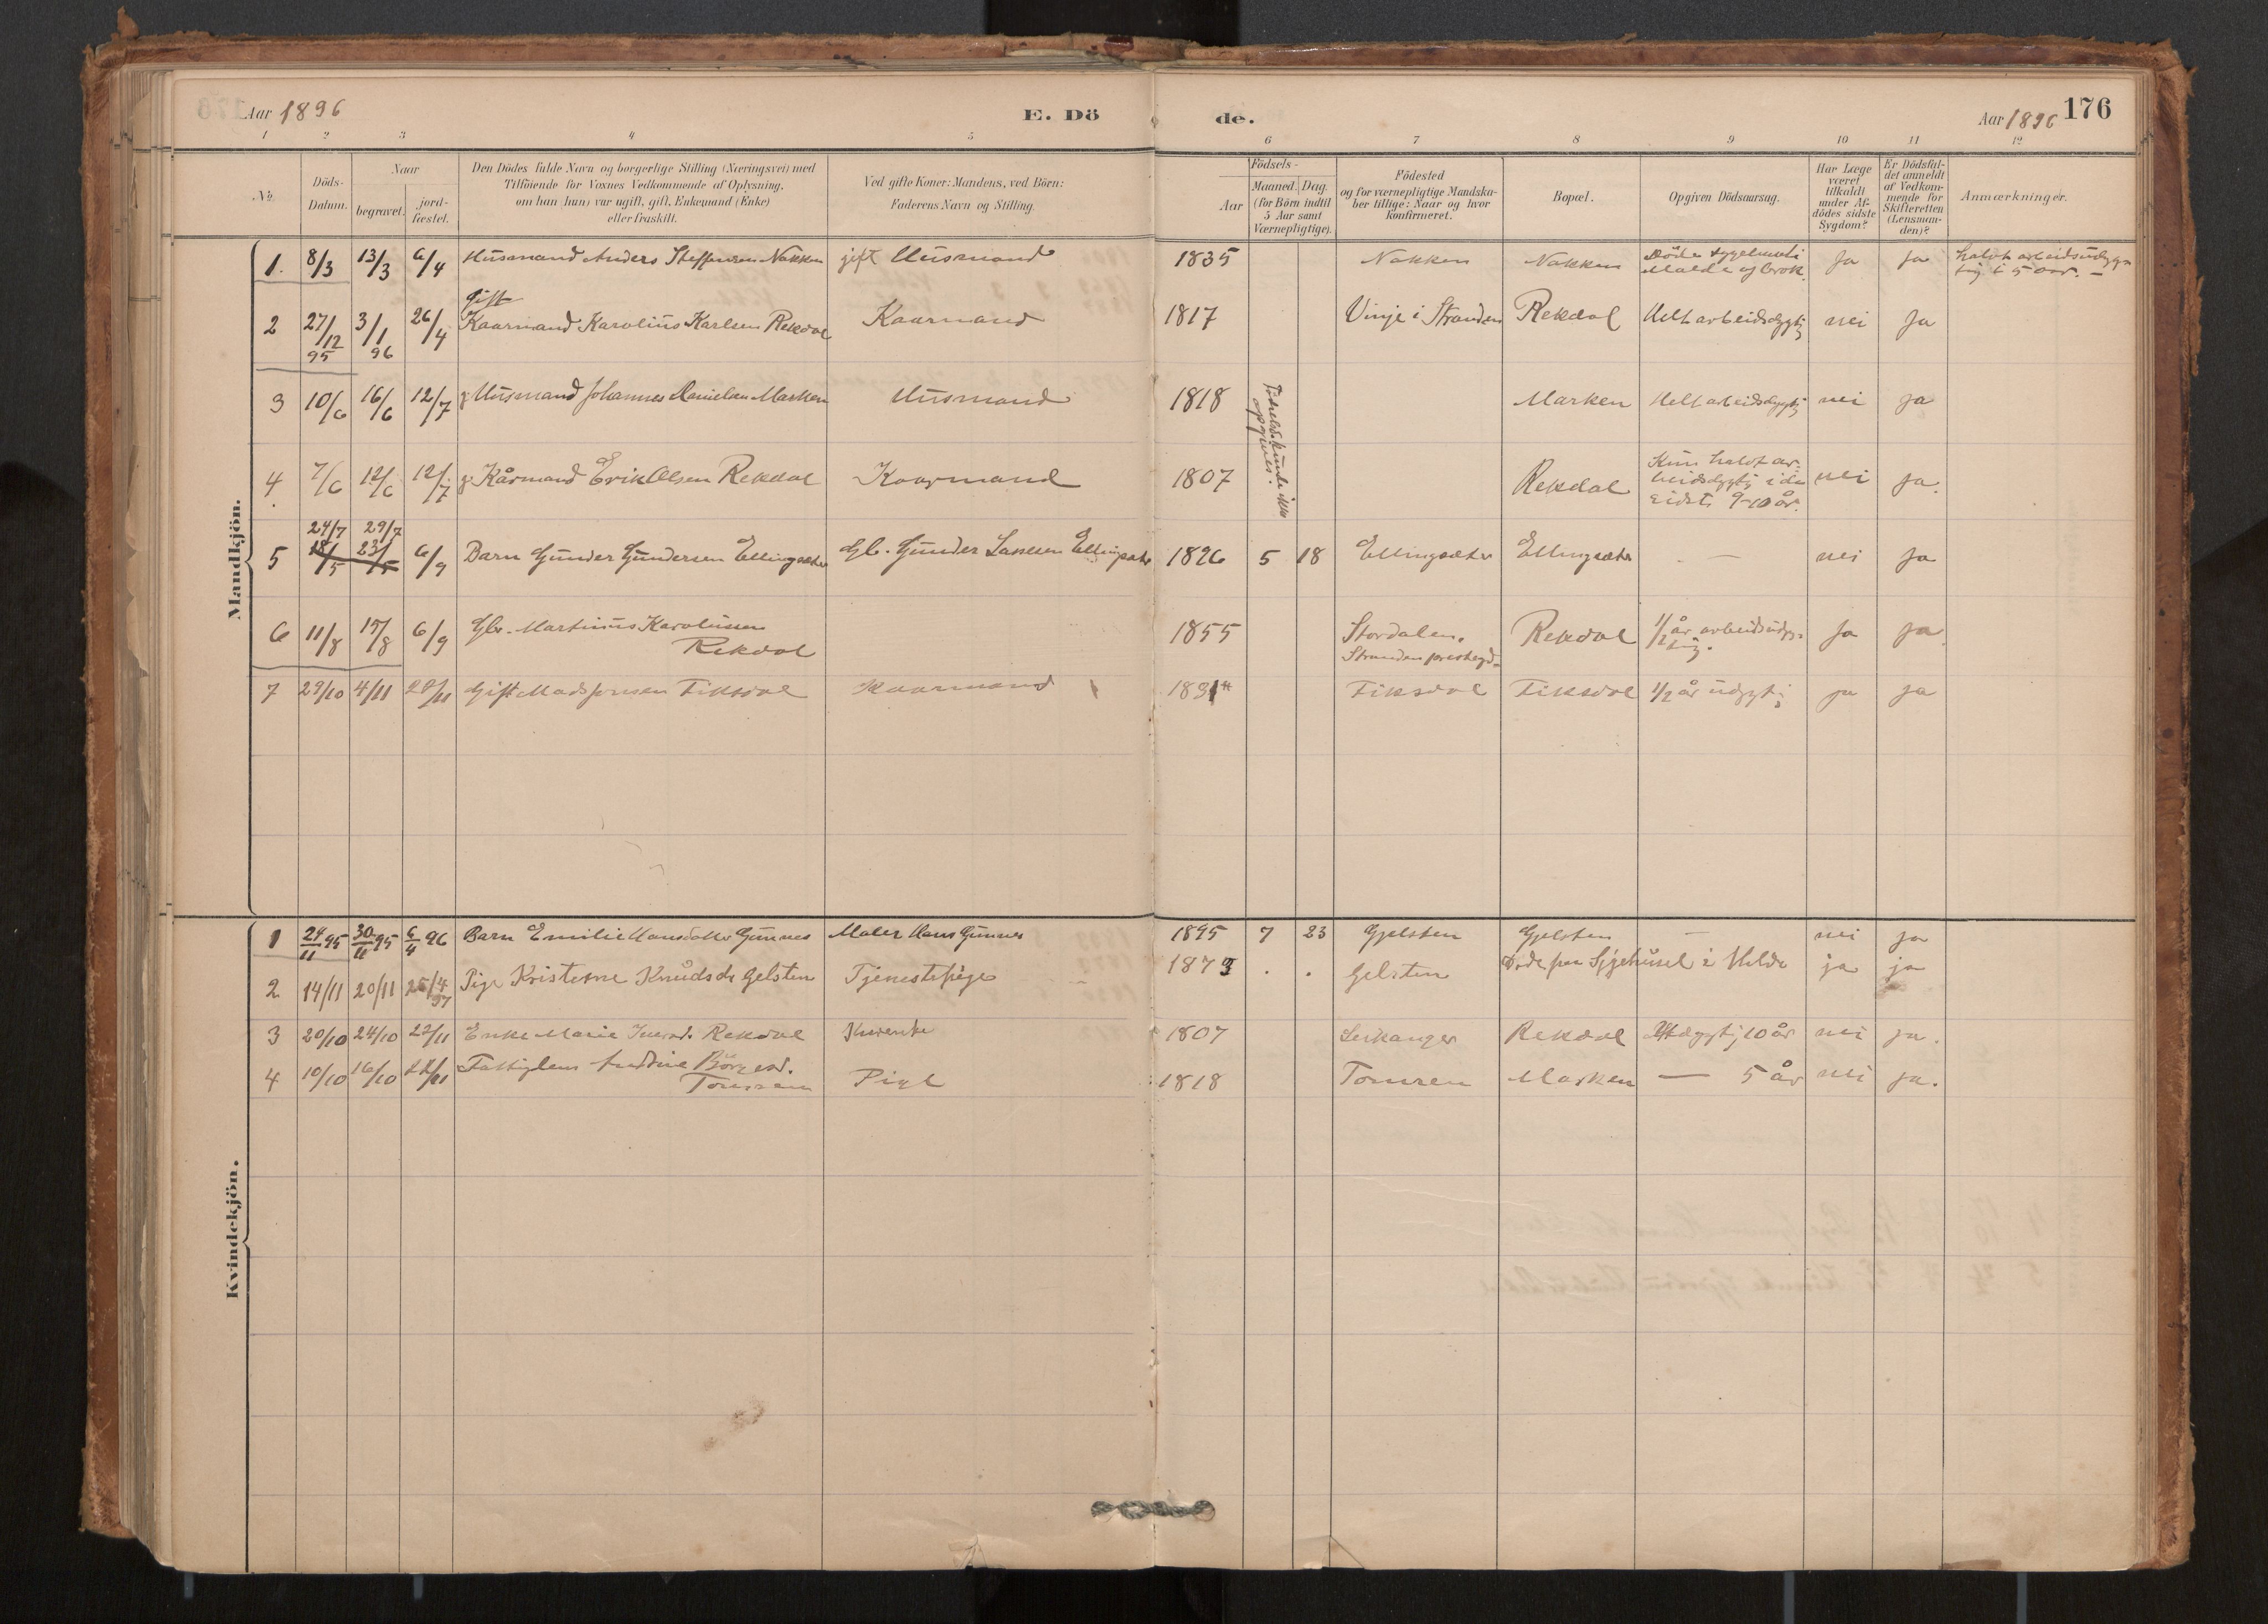 Aar 1896 E. Dö de. Aar 1896 176
1 2 3 4 5 6 7 8 9 10 11 12
No. Döds-Datum. Naar begravet. jord-fæstet. Den Dödes fulde Navn og borgerlige Stilling (Næringsvei) med Tilföiende for Voxnes Vedkommende af Oplysning, om han (hun) var ugift, gift, Enkemand (Enke) eller fraskilt. Ved gifte Koner: Mandens, ved Börn: Faderens Navn og Stilling. Födsels- Aar Maaned. Dag. (for Börn indtil 5 Aar samt Værnepligtige). Födested og for værnepligtige Mandskaber tillige: Naar og hvor konfirmeret. Bopæl. Opgiven Dödsaarsag. Har Læge været tilkaldt under Afdödes sidste Sygdom? Er Dödsfaldet anmeldt af Vedkommende for Skifteretten (Lensmanden)? Anmærkninger.
Mandkjön.
1. 8/3 13/3 6/4 Husmand Anders Steffensen Nakken gift Husmand 1835 Nakken Nakken Ja Ja
2 27/12 95 3/1 96 26/4 Gift Kaarmand Karolius Karlsen Rekdal Kaarmand 1817 Vinje i Stranden Rekdal Helt arbeidsdygtig nei Ja
3 10/6 16/6 12/7 g. Husmand Johannes Danielsen Marken Husmand 1818 Födselsd. kunde ikke opgives. Marken Helt arbeidsdygtig nei Ja
4. 7/6 12/6 12/7 g. Kårmand Erik Olsen Rekdal Kaarmand 1807 Rekdal Kun halvt arbeidsdygtig i de sidste 9-10 år. nei Ja.
5 24/7 18/5 29/7 23/5 6/9 Barn Gunder Gundersen Ellingsæter Gb. Gunder Larsen Ellingsæter 1896 5 18 Ellingsæter Ellingsæter — nei Ja
6 11/8 17/8 6/9 Gbr. Martinus Karolussen Rekdal 1855 Stordalen. Stranden prestegd. Rekdal 1/2 år arbeidsudygtig. Ja Ja
7 29/10 4/11 22/11 Gift Mads Jonsen Fiksdal Kaarmand Fiksdal Fiksdal 1/2 år udygtig ja ja
Kvindekjön.
1 24/11 95 30/11 95 6/4 96 Barn Emilie Hansdatter Gunnes Maler Hans Gunnes 1895 7 23 Gjelsten Gjelsten — nei ja
2 14/11 20/11 25/4 97 Pige Kristerne Knudsdr Gelsten Tjenestepige 1873 . . Gelsten Døde paa Sygehuset i Molde ja ja
3 20/10 24/10 22/11 Enke Marie Iversd. Rekdal Kaarenke 1807 Leikanger Rekdal Udygtig 10 år nei ja.
4 10/10 16/10 22/11 Fattiglem Tomren Pige 1818 Tomren Marken — 5 år nei ja.